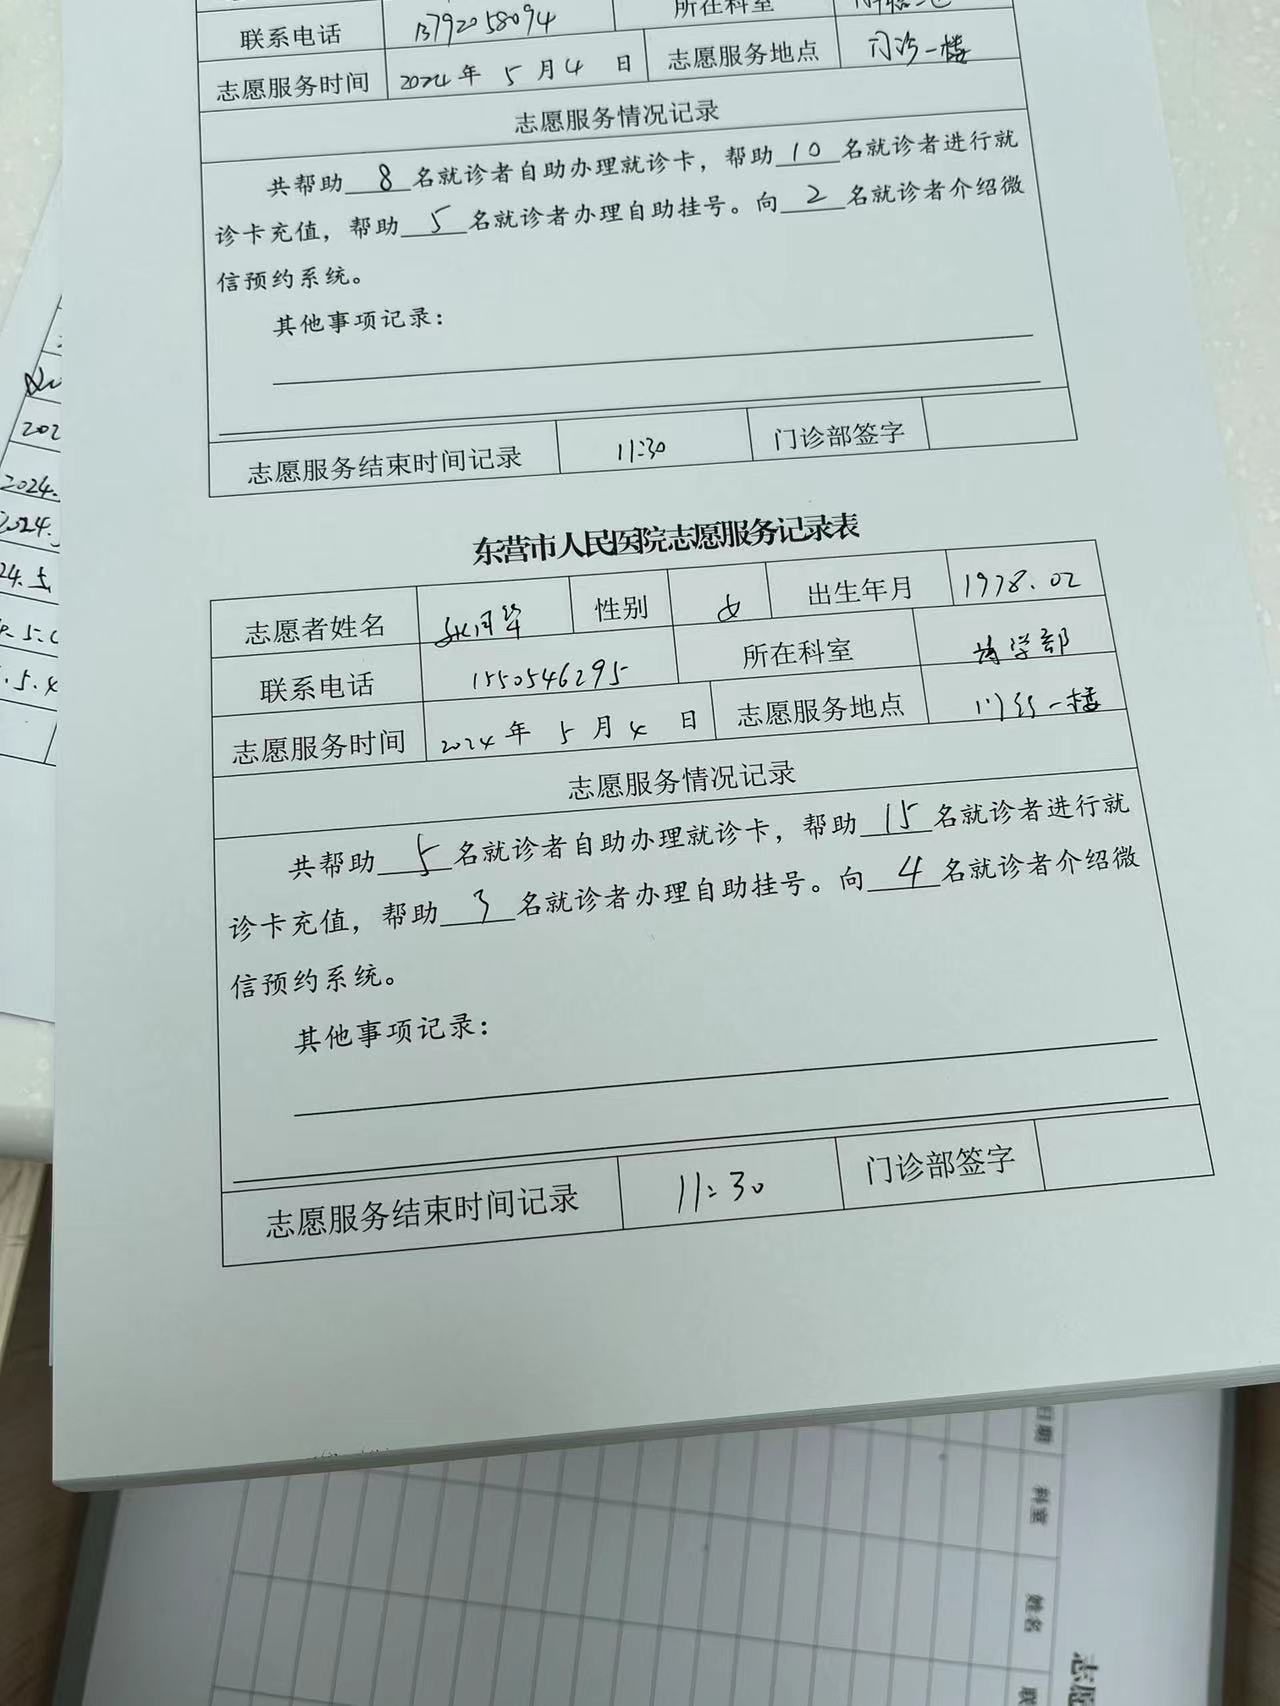 联系电话 13792058094 所在科室
志愿服务时间 2024年 5 月 4 日 志愿服务地点 门诊一楼
志愿服务情况记录
共帮助 8 名就诊者自助办理就诊卡，帮助 10 名就诊者进行就
诊卡充值，帮助 5 名就诊者办理自助挂号。向 2 名就诊者介绍微
信预约系统。
其他事项记录：
志愿服务结束时间记录 11:30 门诊部签字
东营市人民医院志愿服务记录表
志愿者姓名 性别 女 出生年月 1978.02
联系电话 1550546295 所在科室
志愿服务时间 2024年 5 月 4 日 志愿服务地点 门诊一楼
志愿服务情况记录
共帮助 5 名就诊者自助办理就诊卡，帮助 15 名就诊者进行就
诊卡充值，帮助 3 名就诊者办理自助挂号。向 4 名就诊者介绍微
信预约系统。
其他事项记录：
志愿服务结束时间记录 11:30 门诊部签字
202
2024.
2024.5
24.5.
.5.
.5.4
日期
科室
姓名
联
志愿